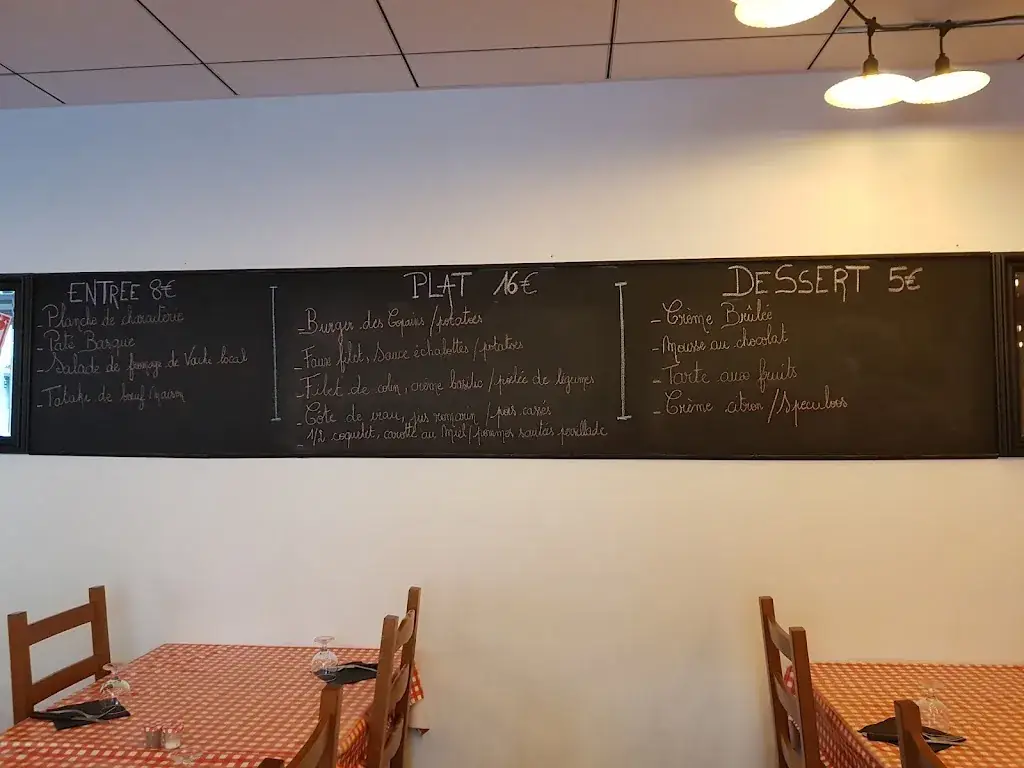 ENTREE 8€
- Planche de charcuterie
- Paté Basque
- Salade de fromage de Vache local
- Tataki de bœuf/maison
PLAT 16€
- Burger des Copains / potatoes
- Faux filet, Sauce échalottes / potatoes
- Filet de colin, crème basilic / poelée de légumes
- Côte de veau, jus romarin / pois cassés
- 1/2 coquelet, carotte au Miel / pommes sautés persillade
DESSERT 5€
- Crème Brûlée
- Mousse au chocolat
- Tarte aux fruits
- Crème citron / Speculoos